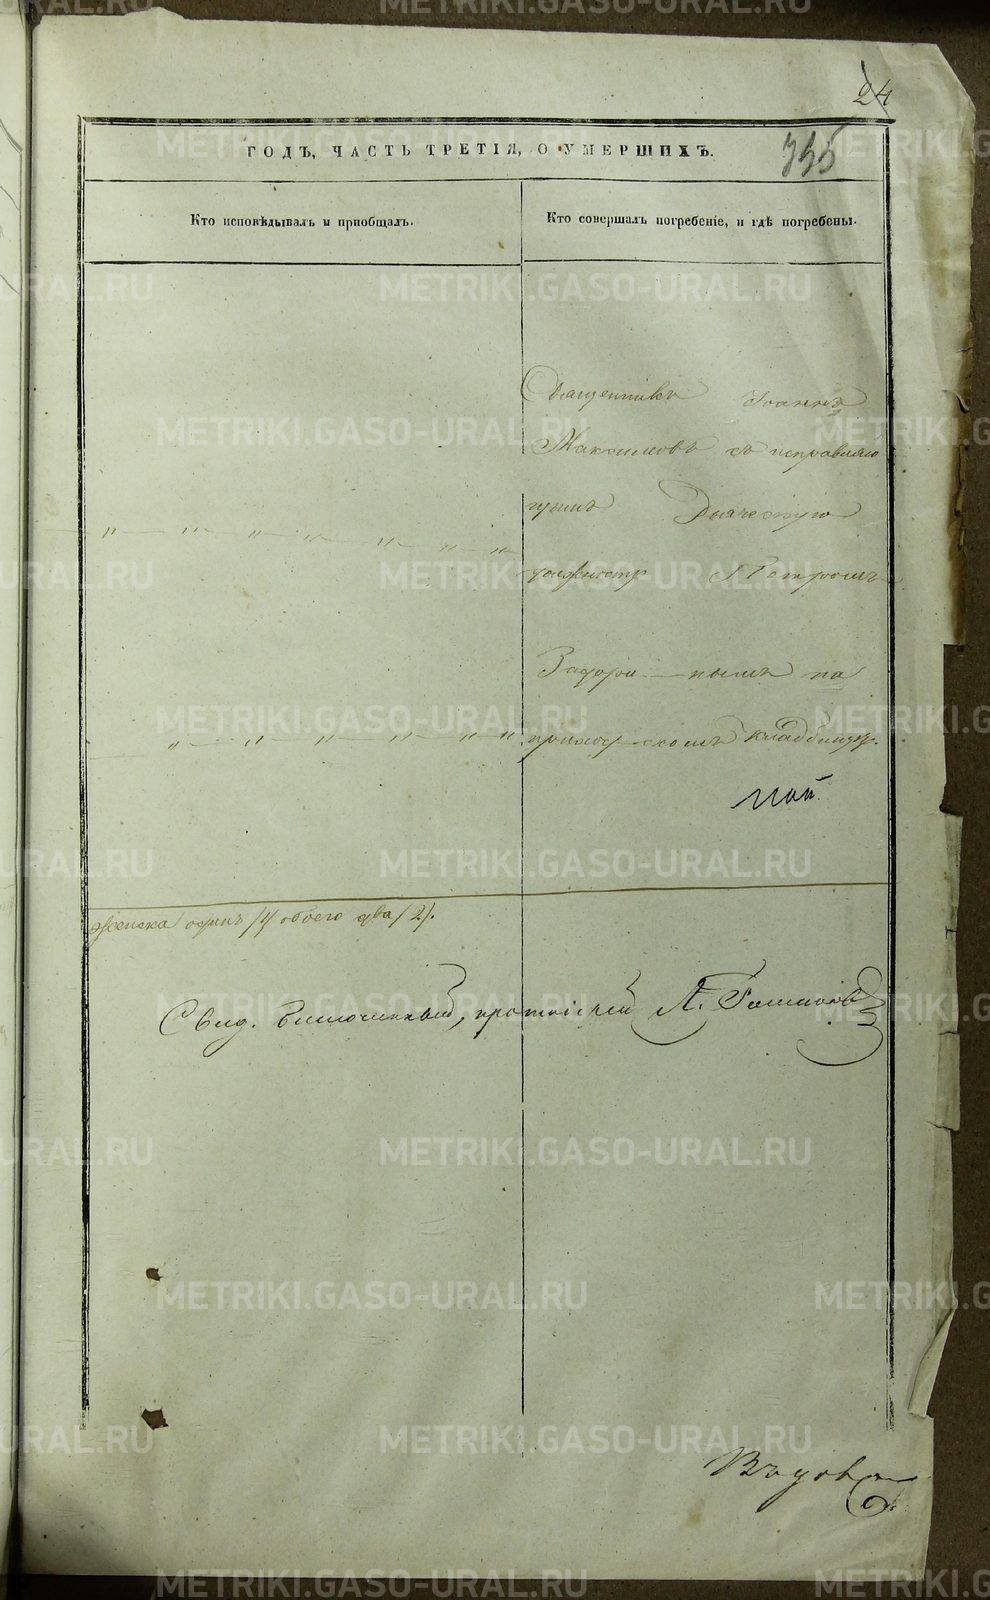 24
355
ГОДЪ, ЧАСТЬ ТРЕТІЯ, О УМЕРШИХЪ.
Кто исповѣдывалъ и пріобщалъ.
Кто совершалъ погребеніе, и гдѣ погребены.
Священникъ Іоаннъ
Максимовъ съ исправляю
щимъ Дьяческую
должность Петромъ
на
приход-скомъ кладбищѣ.
женска одинъ /1/ обоего два /2/.
Свид. благочинный, протоіерей А.
METRIKI.GASO-URAL.RU